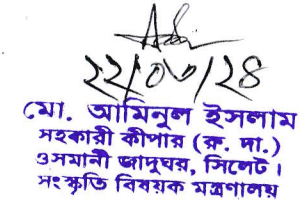 ২২/০৩/২৪
মো. আমিনুল ইসলাম
সহকারী কীপার (রু. দা.)
ওসমানী জাদুঘর, সিলেট।
সংস্কৃতি বিষয়ক মন্ত্রণালয়